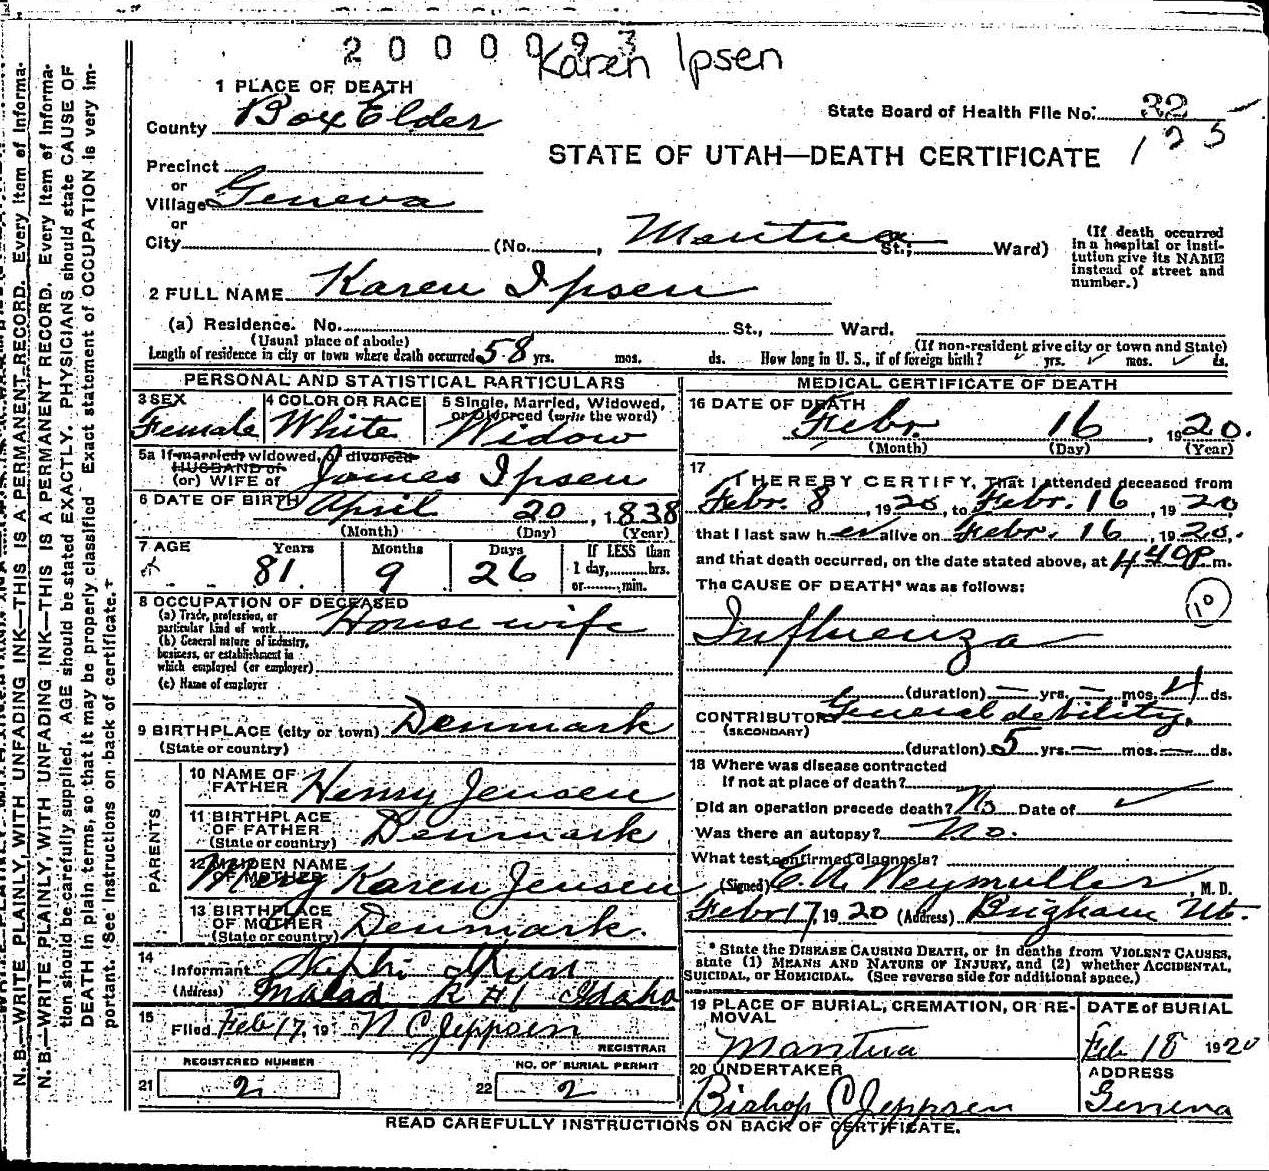 2000093
Karen Ipsen
1 PLACE OF DEATH
County Box Elder
State Board of Health File No. 32
125
STATE OF UTAH—DEATH CERTIFICATE
Precinct
or
Village Geneva
or
City (No. , Mantua St.; Ward)
(If death occurred
in a hospital or insti-
tution give its NAME
instead of street and
number.)
2 FULL NAME Karen Ipsen
(a) Residence. No. St., Ward.
(Usual place of abode) (If non-resident give city or town and State)
Length of residence in city or town where death occurred 58 yrs. mos. ds. How long in U. S., if of foreign birth? yrs. mos. ds.
PERSONAL AND STATISTICAL PARTICULARS
3 SEX 4 COLOR OR RACE 5 Single, Married, Widowed,
or Divorced (write the word)
Female White Widow
5a If married, widowed, or divorced
HUSBAND of
(or) WIFE of James Ipsen
6 DATE OF BIRTH April 20, 1838
(Month) (Day) (Year)
7 AGE Years Months Days If LESS than
1 day, hrs.
or min.
81 9 26
8 OCCUPATION OF DECEASED
(a) Trade, profession, or
particular kind of work House wife
(b) General nature of industry,
business, or establishment in
which employed (or employer)
(c) Name of employer
9 BIRTHPLACE (city or town) Denmark
(State or country)
PARENTS
10 NAME OF
FATHER Henry Jensen
11 BIRTHPLACE
OF FATHER Denmark
(State or country)
12 MAIDEN NAME
OF MOTHER Mary Karen Jensen
13 BIRTHPLACE
OF MOTHER Denmark.
(State or country)
14
Informant Nephi Ipsen
(Address) Malad R #1 Idaho
15
Filed Feb 17, 19 N C Jeppsen
REGISTRAR
REGISTERED NUMBER NO. OF BURIAL PERMIT
21 2 22 2
MEDICAL CERTIFICATE OF DEATH
16 DATE OF DEATH
Febr. 16, 1920.
(Month) (Day) (Year)
17
I HEREBY CERTIFY, That I attended deceased from
Febr. 8, 1920, to Febr. 16, 1920
that I last saw h er alive on Febr. 16, 1920.
and that death occurred, on the date stated above, at 4 40 P m.
The CAUSE OF DEATH* was as follows:
10
Influenza
(duration) — yrs. — mos. 4 ds.
CONTRIBUTORY General debility.
(SECONDARY)
(duration) 5 yrs. — mos. — ds.
18 Where was disease contracted
if not at place of death?
Did an operation precede death? No Date of
Was there an autopsy? No.
What test confirmed diagnosis?
(Signed) Weymuller, M. D.
Febr 17, 1920 (Address) Brigham Ut.
* State the DISEASE CAUSING DEATH, or in deaths from VIOLENT CAUSES,
state (1) MEANS AND NATURE OF INJURY, and (2) whether ACCIDENTAL,
SUICIDAL, or HOMICIDAL. (See reverse side for additional space.)
19 PLACE OF BURIAL, CREMATION, OR RE-
MOVAL
Mantua
DATE OF BURIAL
Feb 18 1920
20 UNDERTAKER
Bishop C Jeppsen
ADDRESS
Geneva
READ CAREFULLY INSTRUCTIONS ON BACK OF CERTIFICATE.
N. B.—WRITE PLAINLY, WITH UNFADING INK—THIS IS A PERMANENT RECORD. Every item of informa-
N. B.—WRITE PLAINLY, WITH UNFADING INK—THIS IS A PERMANENT RECORD. Every item of informa-
tion should be carefully supplied. AGE should be stated EXACTLY. PHYSICIANS should state CAUSE OF
DEATH in plain terms, so that it may be properly classified. Exact statement of OCCUPATION is very im-
portant. (See instructions on back of certificate.